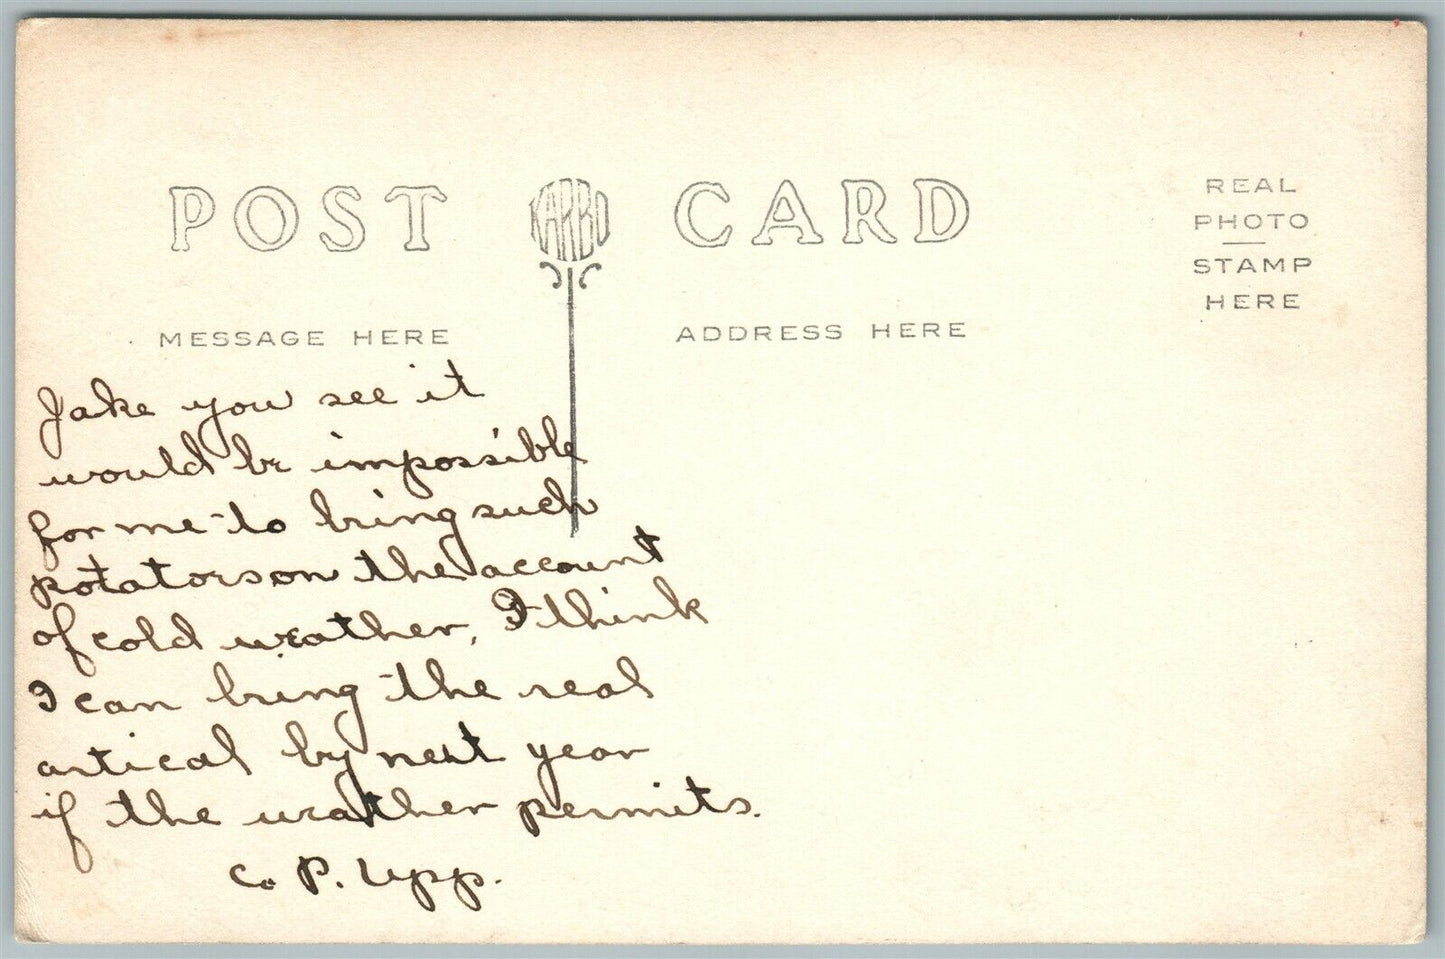 POST KARBO CARD
REAL
PHOTO
STAMP
HERE
MESSAGE HERE
ADDRESS HERE
Jake you see it
would be impossible
for me to bring such
potators on the account
of cold weather, I think
I can bring the real
artical by next year
if the weather permits.
C. P. Upp.